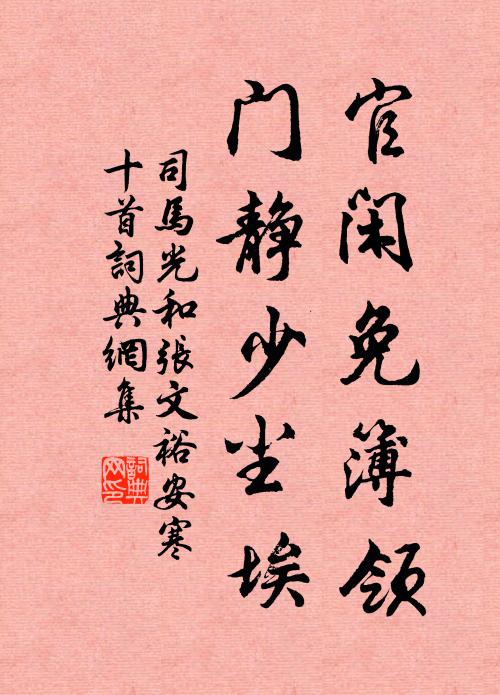 官闲免簿领
门静少尘埃
司馬光和張文裕安寒
十首詞典網集
詞典
网印